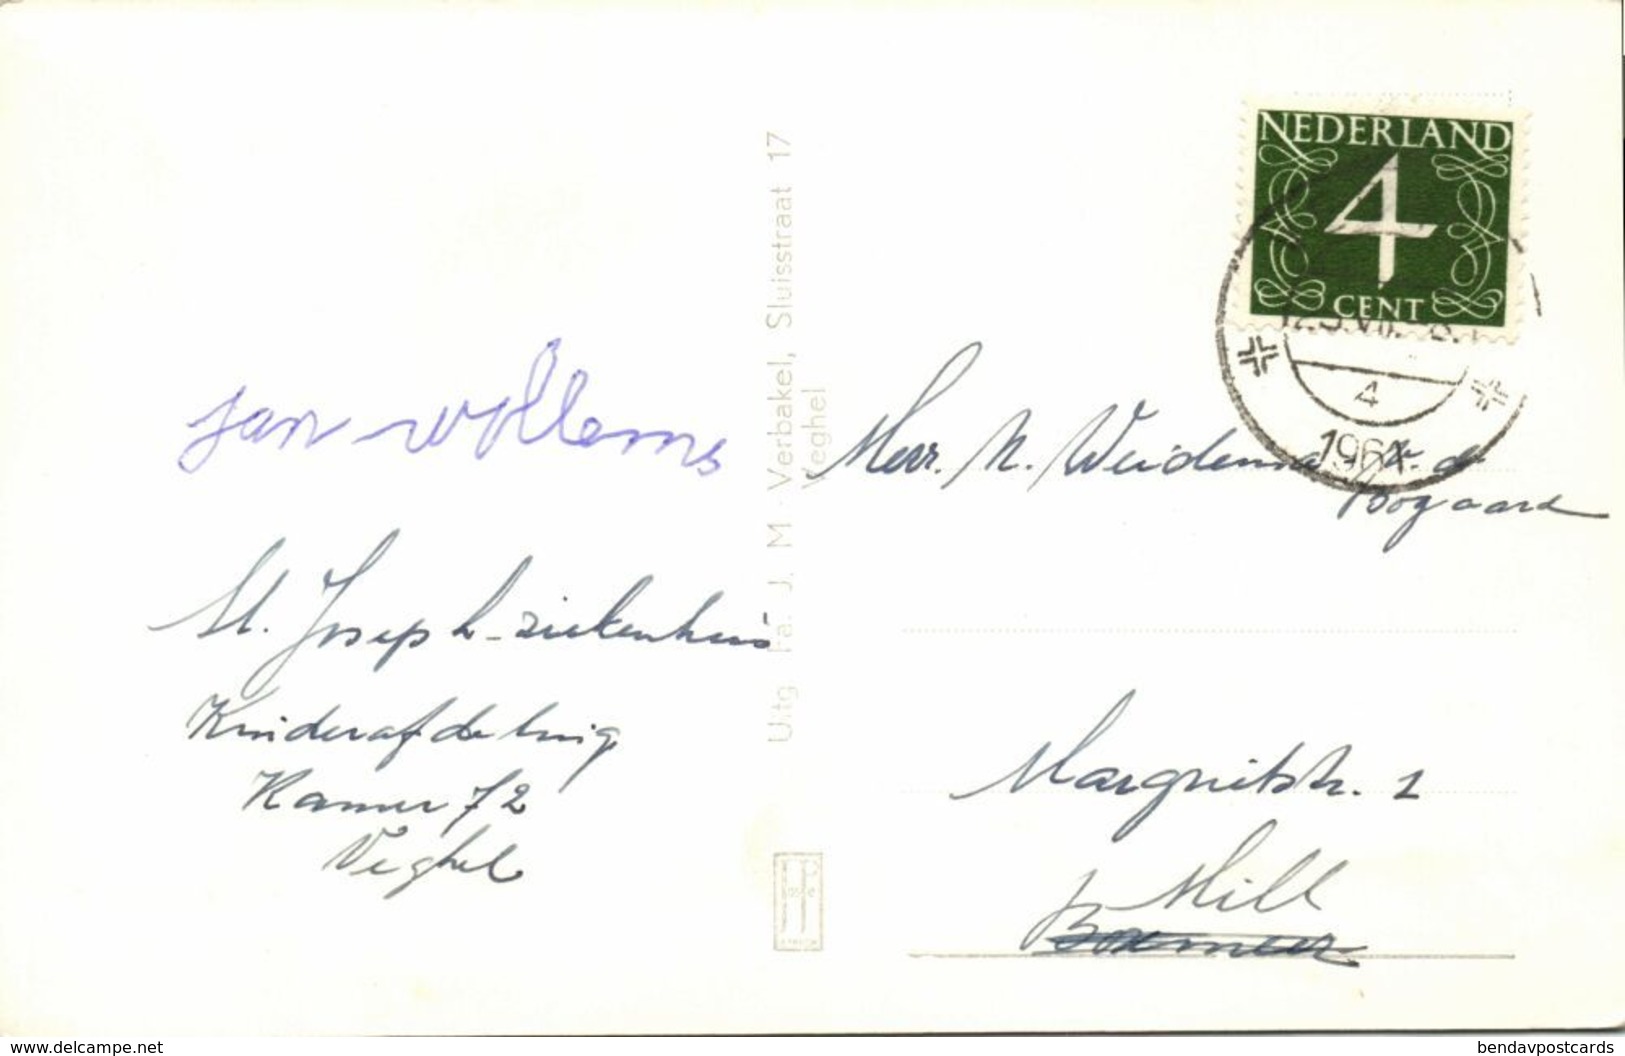 NEDERLAND
4
CENT
4
1961
Uitg. Fa. J. M. Verbakel, Sluisstraat 17
Veghel
jan willems
St. Joseph-ziekenhuis
Kinderafdeling
Kamer 72
Veghel
N. Weidema v. d.
Bogaard
Margrietstr. 1
Mill
Boxmeer
www.delcampe.net
bendavpostcards